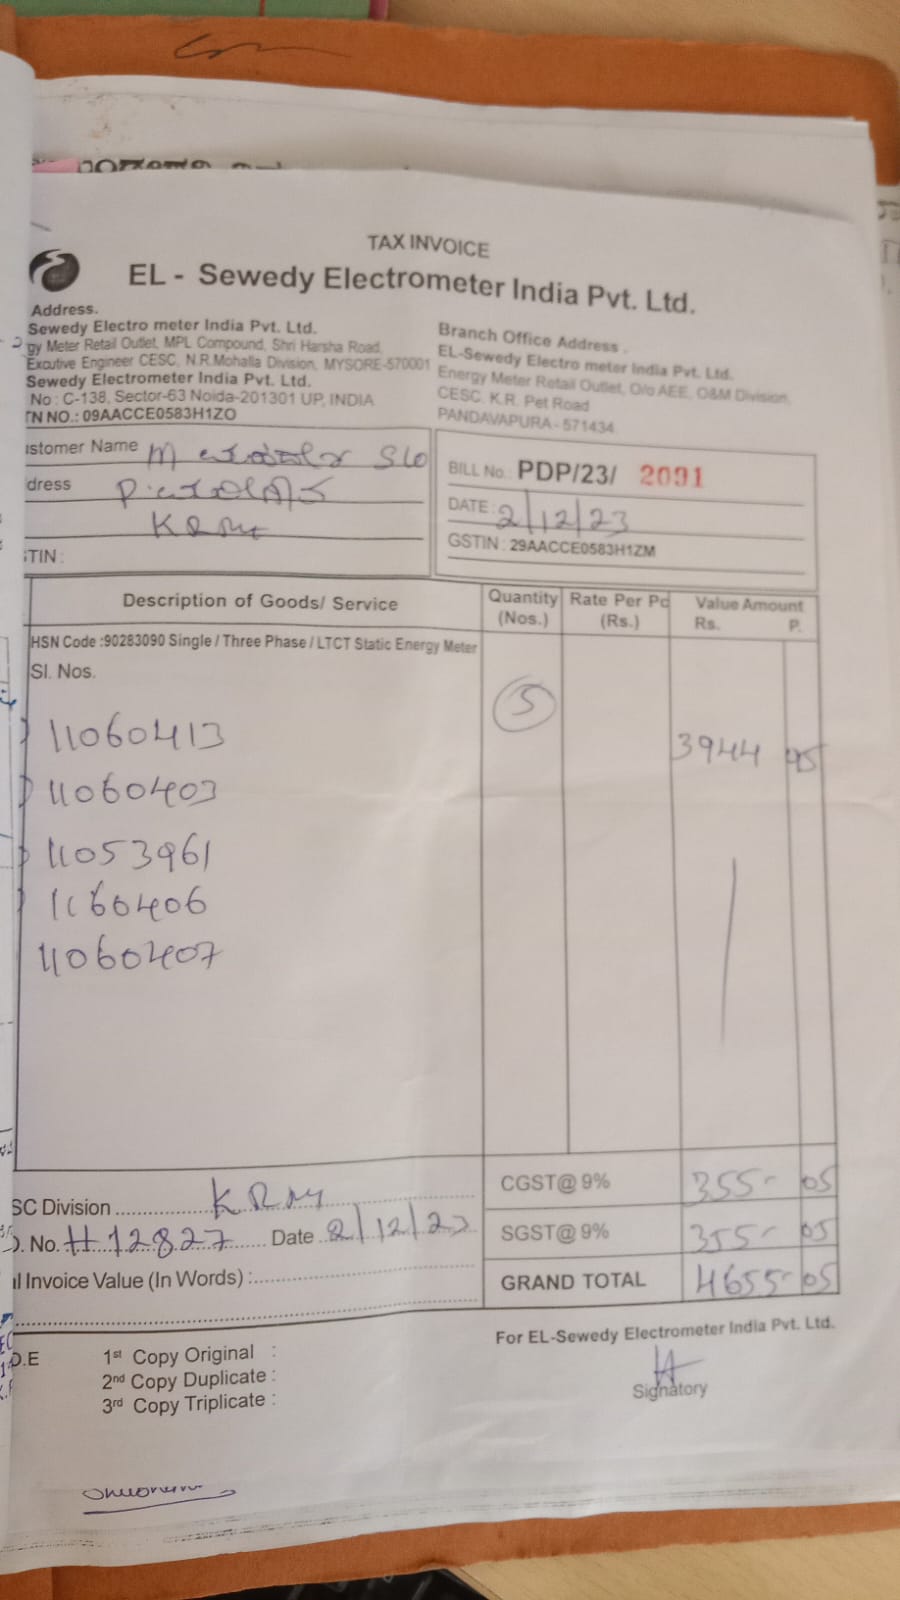 TAX INVOICE
EL - Sewedy Electrometer India Pvt. Ltd.
Address.
Sewedy Electro meter India Pvt. Ltd.
gy Meter Retail Outlet, MPL Compound, Shri Harsha Road,
Excutive Engineer CESC, N.R.Mohalla Division, MYSORE-570001
Sewedy Electrometer India Pvt. Ltd.
No : C-138, Sector-63 Noida-201301 UP, INDIA
TN NO.: 09AACCE0583H1ZO
Branch Office Address .
EL-Sewedy Electro meter India Pvt. Ltd.
Energy Meter Retail Outlet, O/o AEE, O&M Division,
CESC. K.R. Pet Road
PANDAVAPURA - 571434
ustomer Name
dress
TIN :
BILL No.: PDP/23/ 2091
DATE : 2/12/23
GSTIN : 29AACCE0583H1ZM
Description of Goods/ Service Quantity (Nos.) Rate Per Pc (Rs.) Value Amount Rs. P.
HSN Code :90283090 Single / Three Phase / LTCT Static Energy Meter
Sl. Nos.
11060413 5 3944 95
11060403
11053961
11060406
11060407
CGST@ 9% 355- 05
SGST@ 9% 355- 05
GRAND TOTAL 4655- 05
SC Division
. No. # 12827 Date 2/12/23
l Invoice Value (In Words) :
For EL-Sewedy Electrometer India Pvt. Ltd.
Signatory
O.E
1st Copy Original :
2nd Copy Duplicate :
3rd Copy Triplicate :